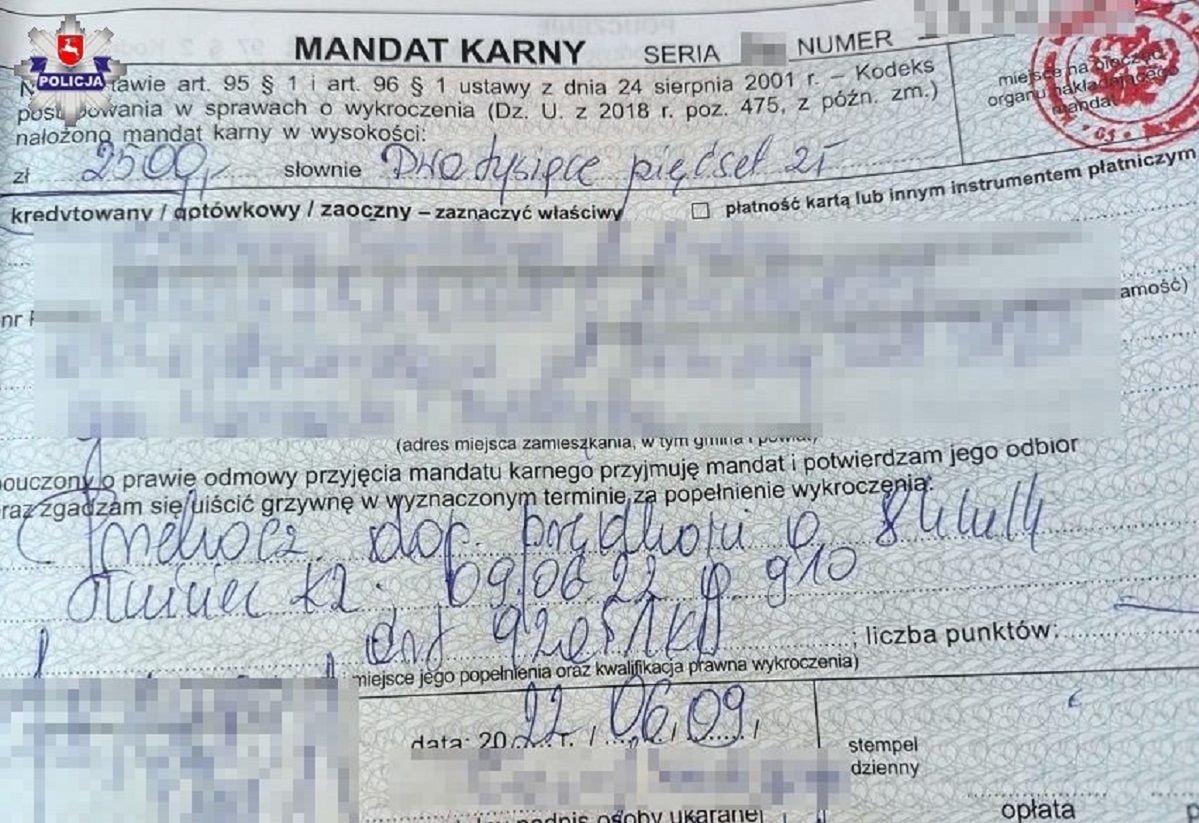 POLICJA
MANDAT KARNY SERIA NUMER
stawie art. 95 § 1 i art. 96 § 1 ustawy z dnia 24 sierpnia 2001 r. – Kodeks
postępowania w sprawach o wykroczenia (Dz. U. z 2018 r. poz. 475, z późn. zm.)
nałożono mandat karny w wysokości:
miejsce na pieczęć
organu nakładającego
mandat
zł 2500,- słownie Dwa tysiące pięćset zł
kredytowany / gotówkowy / zaoczny – zaznaczyć właściwy
płatność kartą lub innym instrumentem płatniczym
amość)
nr
(adres miejsca zamieszkania, w tym gmina i powiat)
pouczony o prawie odmowy przyjęcia mandatu karnego przyjmuję mandat i potwierdzam jego odbiór
oraz zgadzam się uiścić grzywnę w wyznaczonym terminie za popełnienie wykroczenia:
dop. prędkości o
09.06.22 910
; liczba punktów:
miejsce jego popełnienia oraz kwalifikacja prawna wykroczenia)
data: 2022 r. 06.09.
stempel
dzienny
podpis osoby ukaranej
opłata